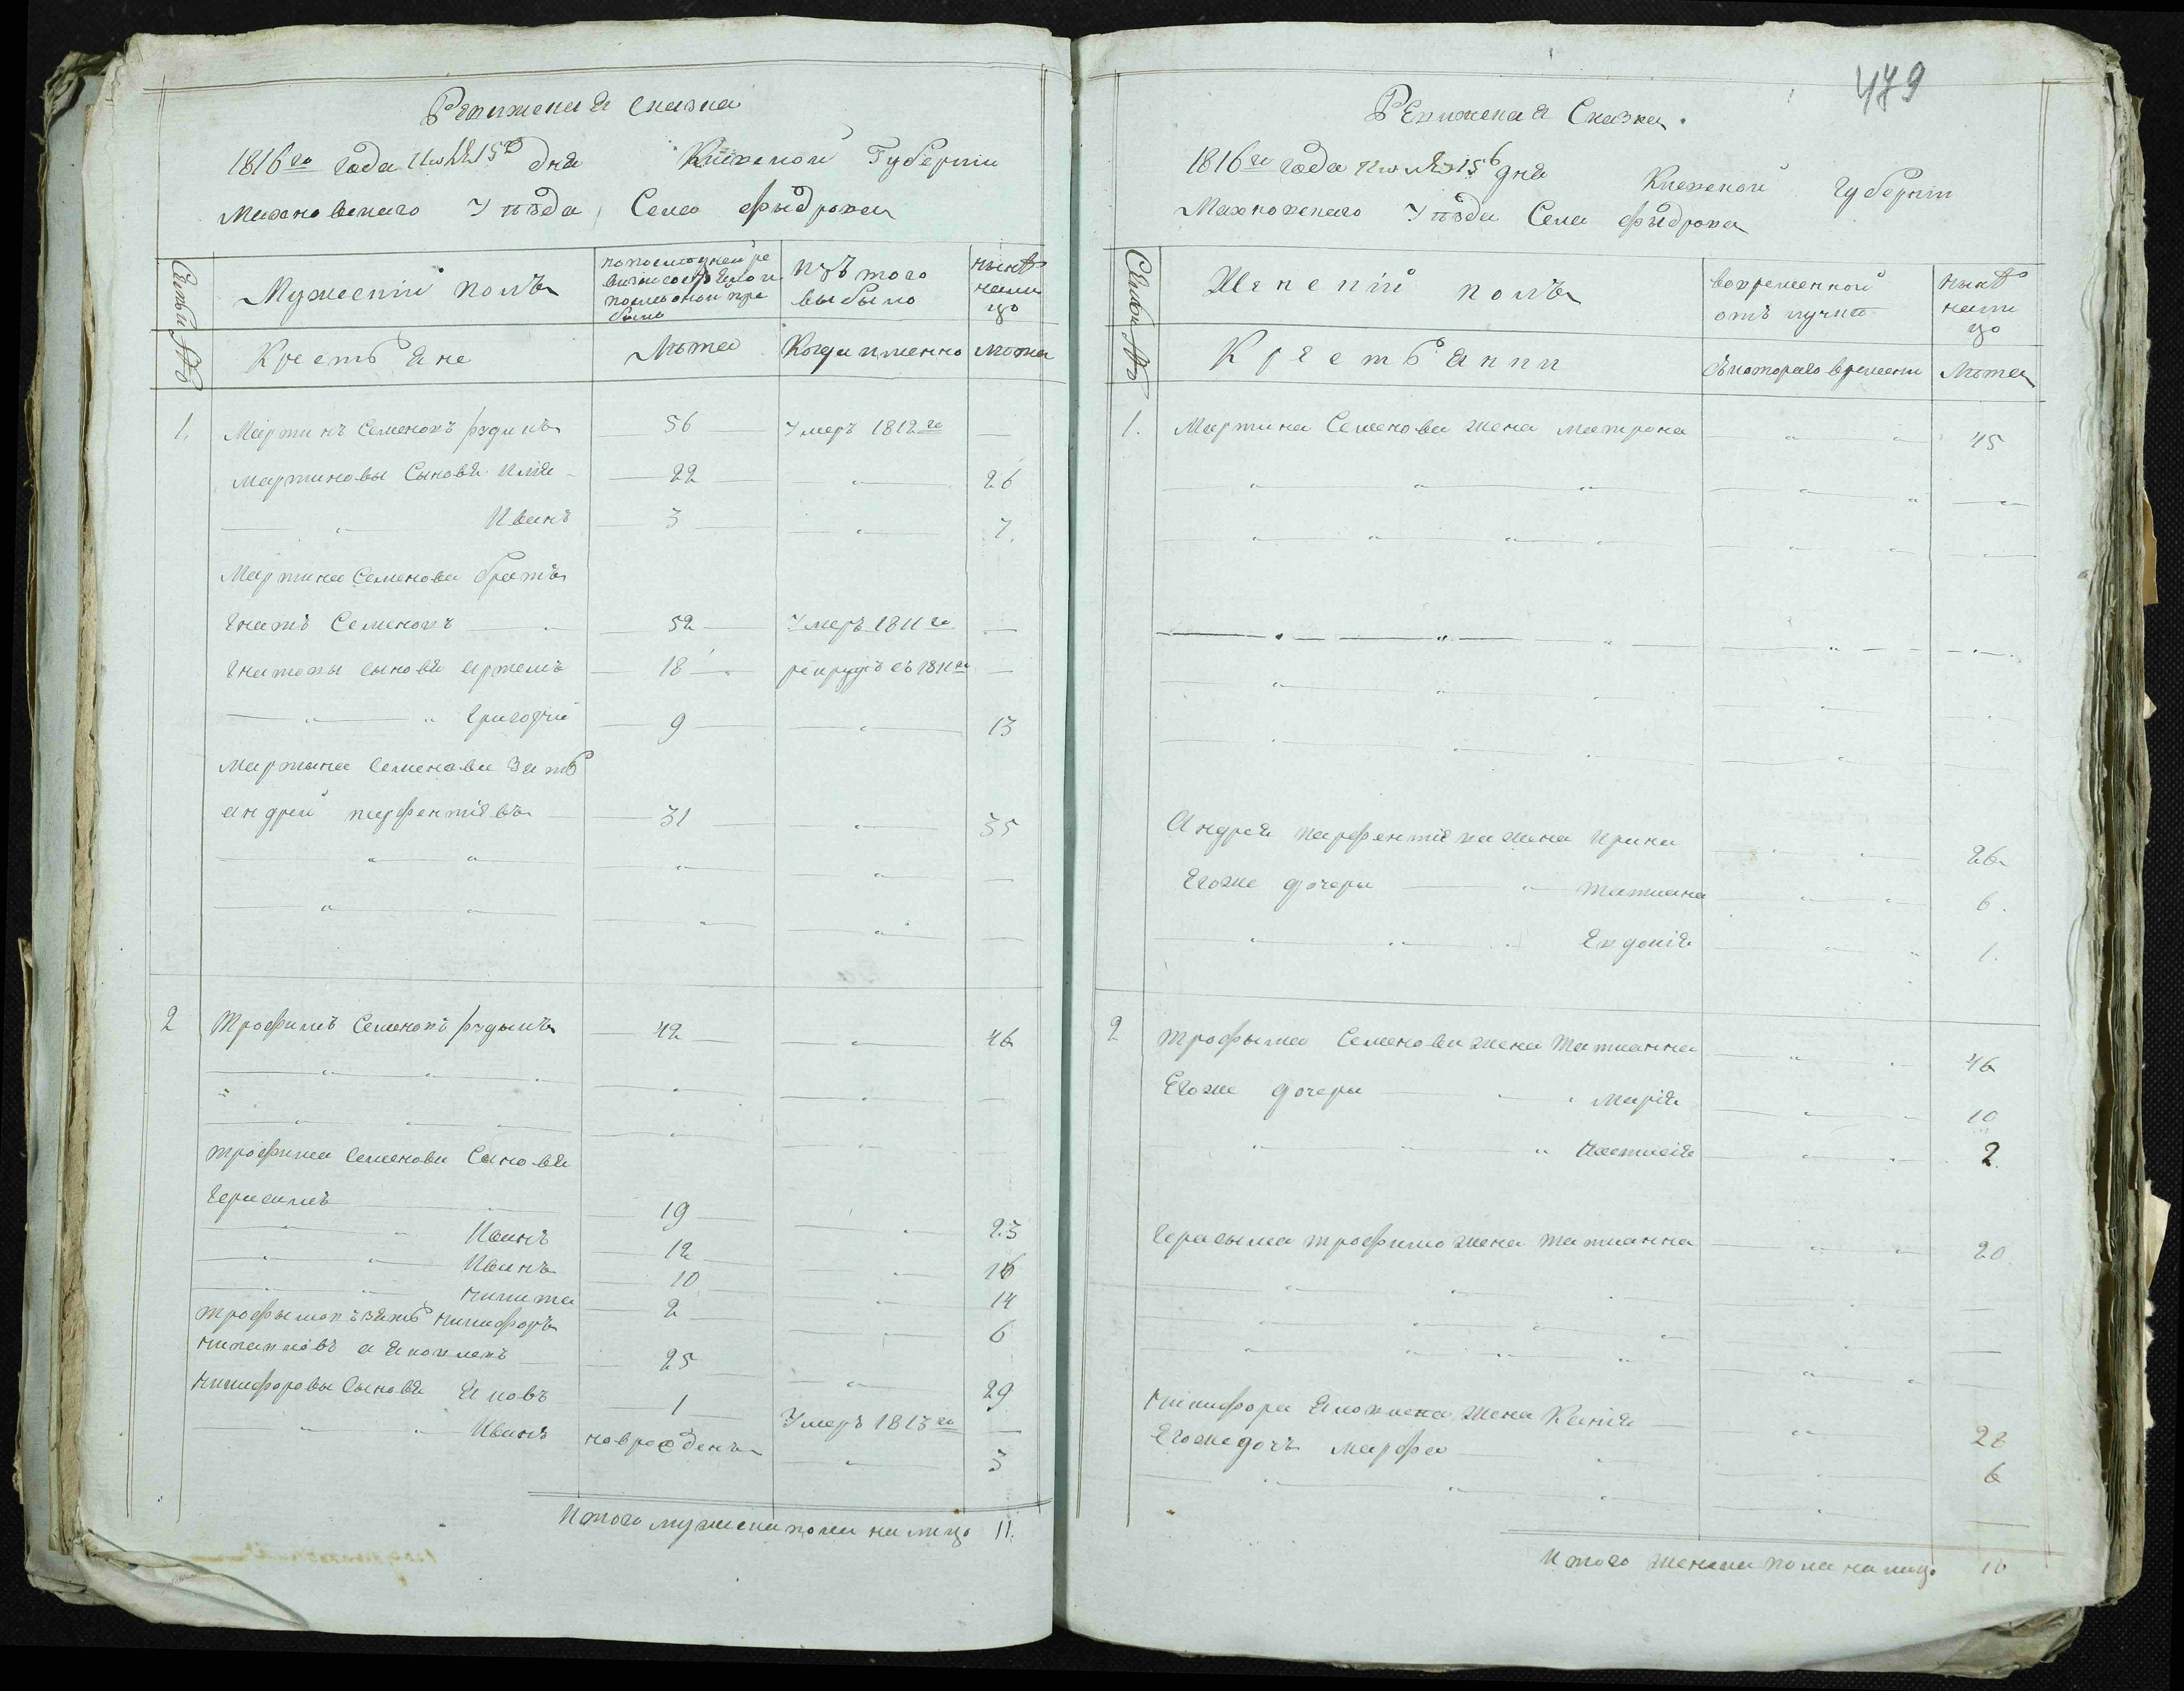 Ревижская сказка
1816го года Июля 15го дня Киевской Губернiи
Махновскаго Уѣзда Села Фыдровки
Семьи №
Мужескiй полъ
по последней ре
визiи состояло и
после оной при
было
Изъ того
выбыло
нынѣ
на ли
цо
Крестьяне
Лѣта
Когда именно
Лѣта
1. Мартинъ Семеновъ 56 Умеръ 1812го —
Мартиновы Сыновя Илiя 22 " 26
" Иванъ 3 " 7.
Мартина Семенова братъ
Гнатъ Семеновъ 52 Умеръ 1811го —
Гнатовы сыновя Артемъ 18 рекрутъ съ 1811го —
" " Григорiй 9 " 13
Мартина Семенова Зать
андрей парфентiевъ 31 " 35
2 Трофимъ Семеновъ 42 " 46
Трофима Семенова Сыновя
Герасимъ 19 23
Иванъ 12 16
Иванъ 10 14
Никита 2 6
Трофымовъ зять Никифоръ
Яковлевъ 25 " 29
Никифоровы Сыновя Яковъ 1 Умеръ 1813го —
Иванъ новрожденъ " 3
Итого мужеска пола на лицо 11.
479
Ревижская Сказка.
1816го года Июля 15 дня Киевской Губернiи
Махновскаго Уѣзда Села Фыдровки
Семьи №
Женскiй полъ
во временной
отлучке
нынѣ
на ли
цо
Крестьянки
Съ котораго времени
Лѣта
1. Мартина Семенова жена Матрона " " 45
Андрея парфентiева жена Ирина 26
Егоже дочеры Татиана 6.
Евдокiя 1.
2 Трофыма Семенова жена Татианна 46
Егоже дочеры Марiя 10
" Настасiя 2
Герасыма трофимо жена Татианна 20
Никифора Яковлева жена Ксенiя 28
Егоже дочь Марфа 6
Итого женска пола на лицо 10